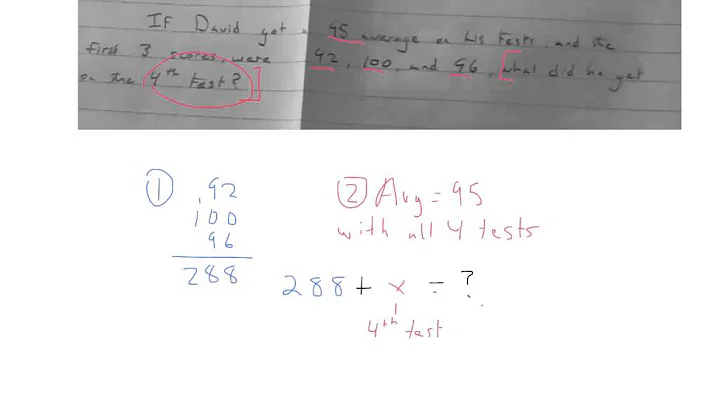 If David got a 95 average on his tests, and the
first 3 scores, were 92, 100, and 96, what did he get
on the 4th test?
① 92
100
96
288
② Avg = 95
with all 4 tests
288 + x = ?
4th test